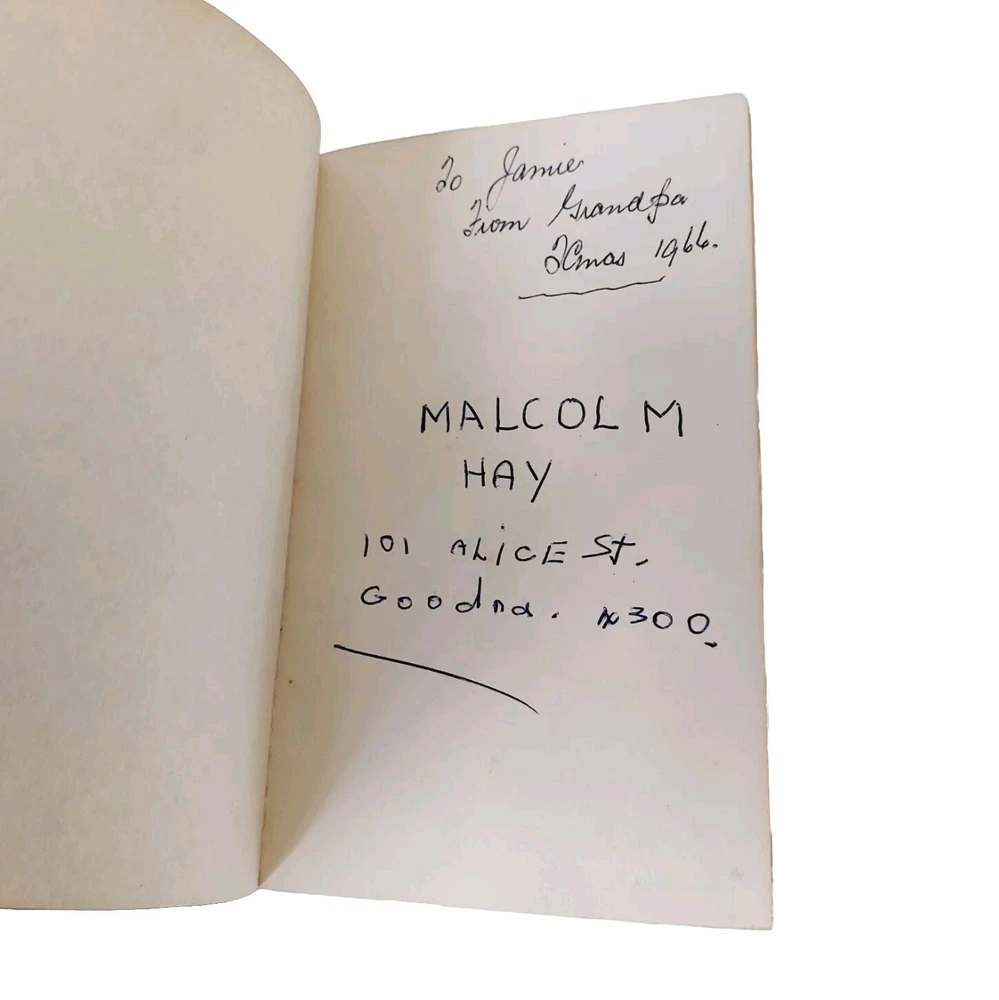 To Jamie
From Grandpa
Xmas 1966.
MALCOLM
HAY
101 ALiCE St.
Goodna. 4300.